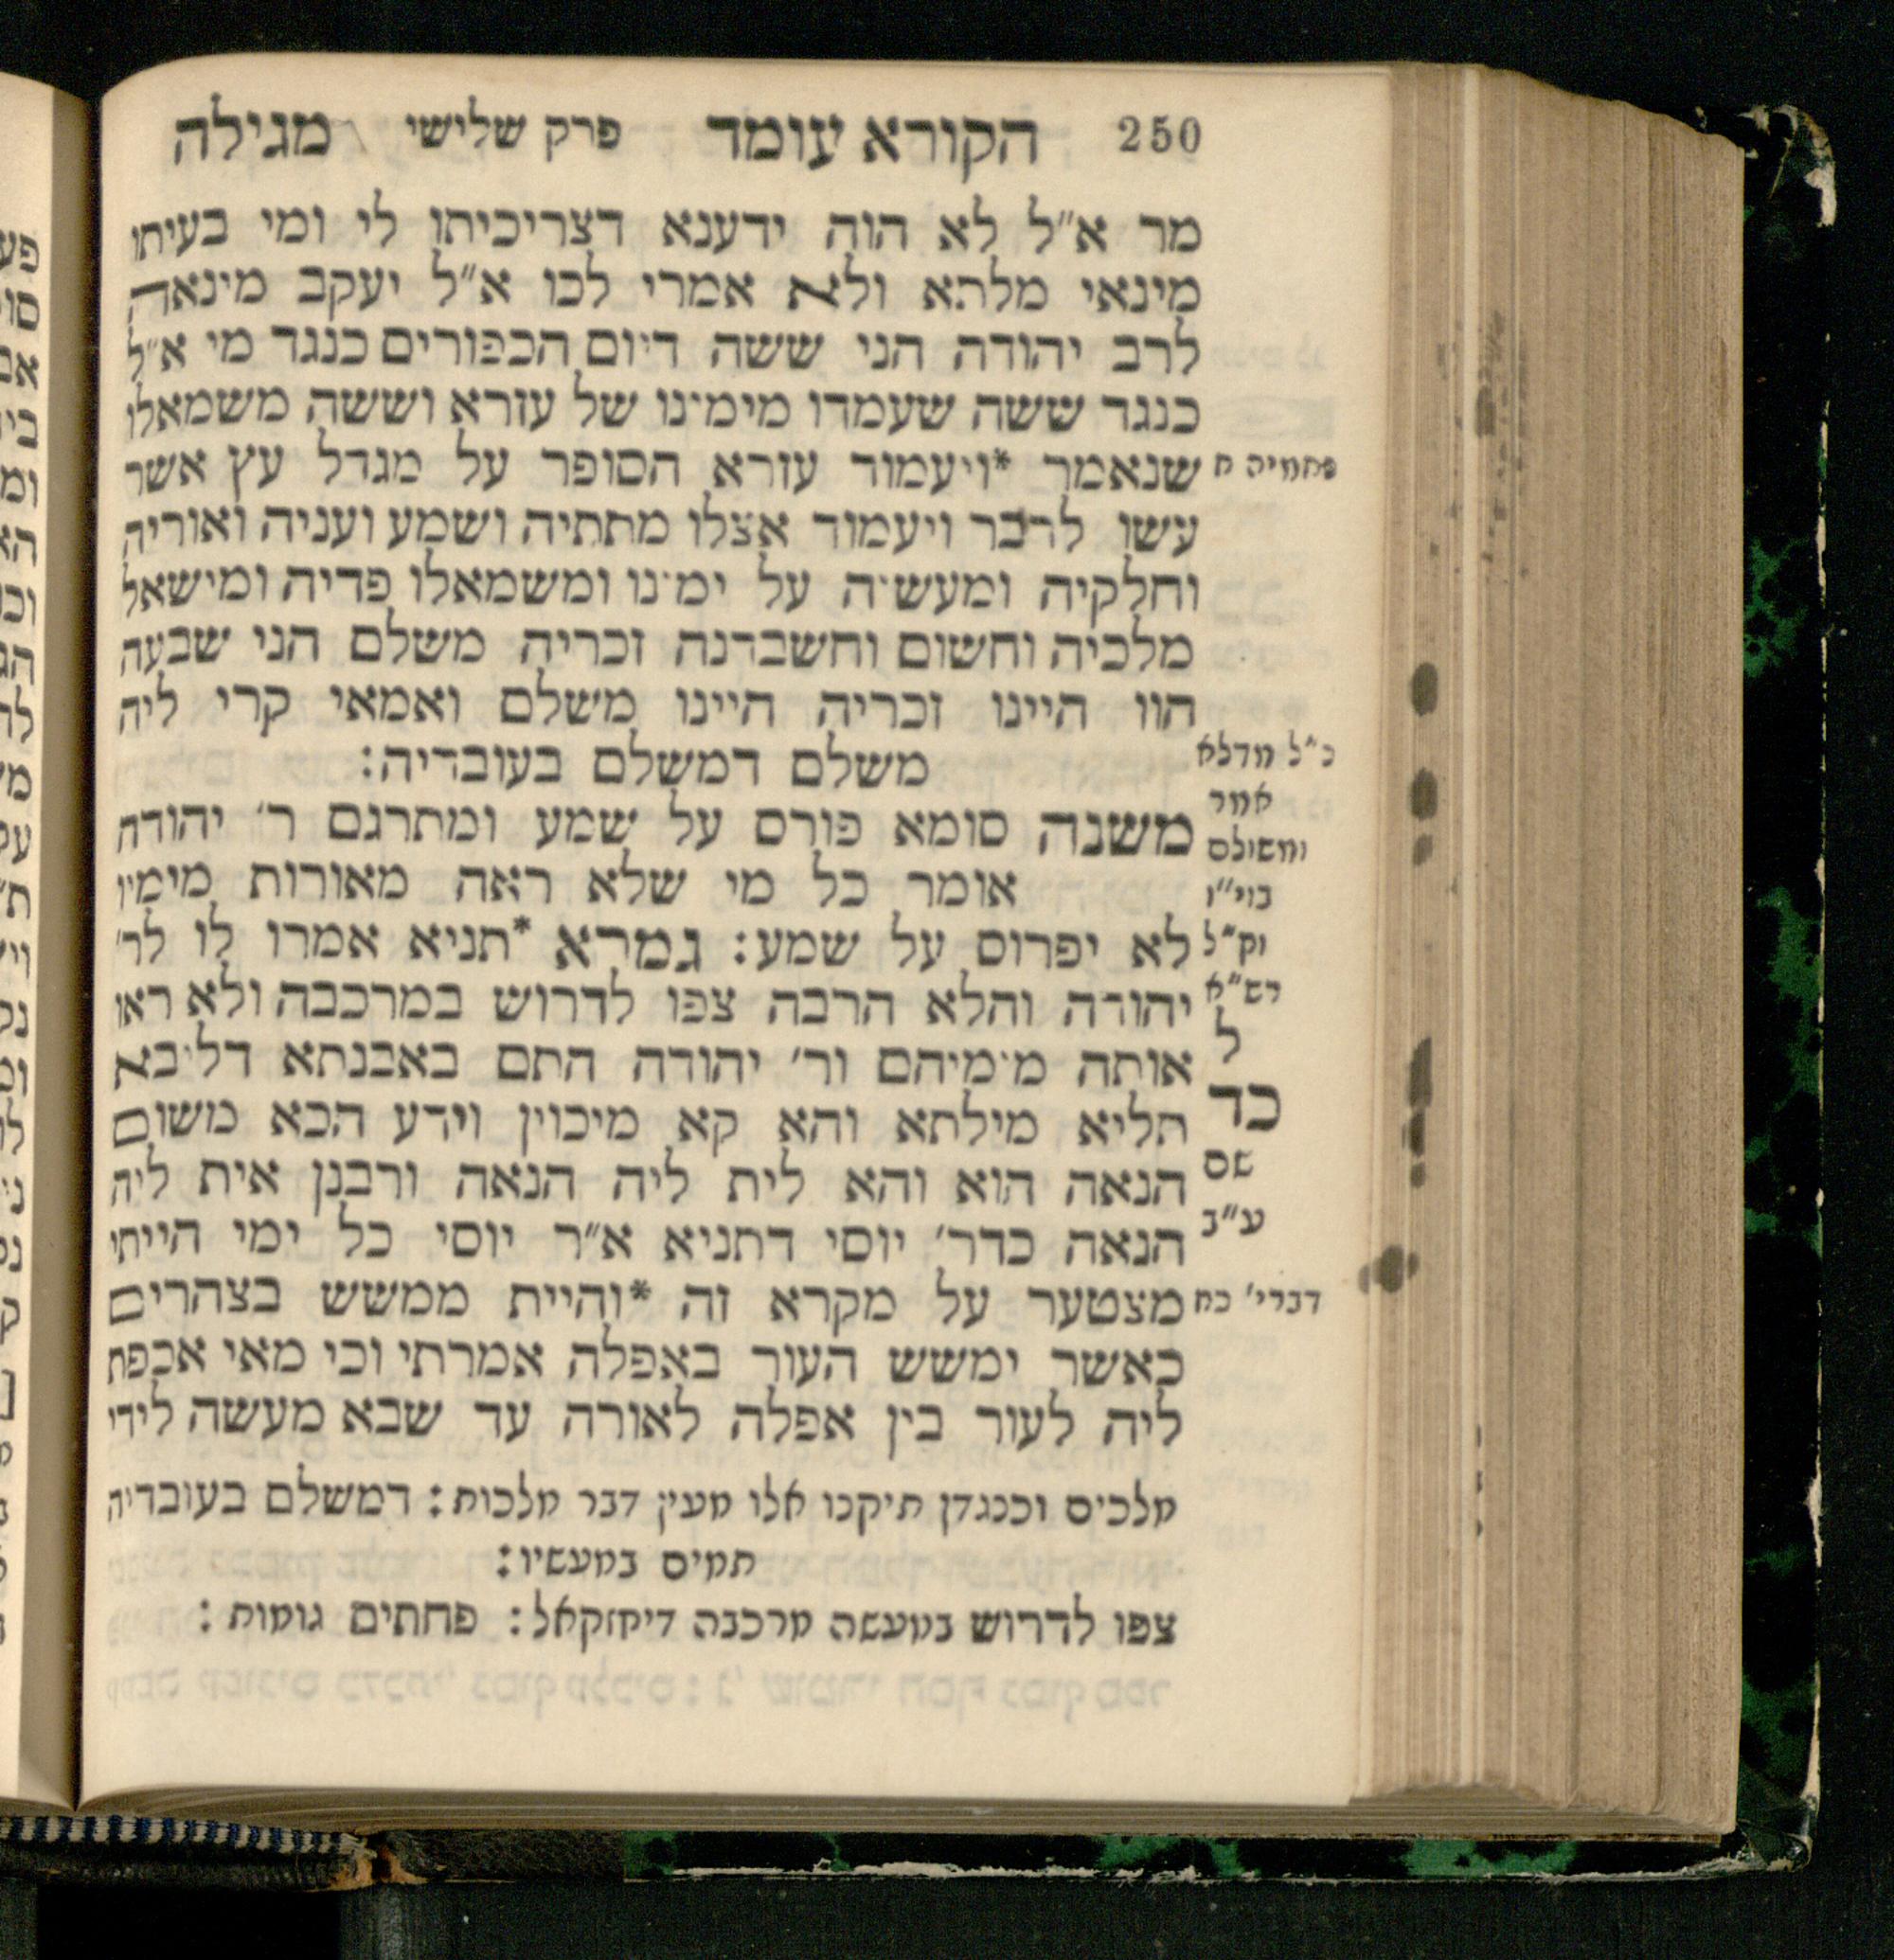 250 הקורא עומד פרק שלישי מגילה
מר א״ל לא הוה ידענא דצריכיתו לי ומי בעיתו
מינאי מלתא ולא אמרי לכו א״ל יעקב מינאה
לרב יהודה הני ששה דיום הכפורים כנגד מי א״ל
כנגד ששה שעמדו מימינו של עזרא וששה משמאלו
שנאמר *ויעמוד עזרא הסופר על מגדל עץ אשר
נחמיה ח
עשו לדבר ויעמוד אצלו מתתיה ושמע ועניה ואוריה
וחלקיה ומעשיה על ימינו ומשמאלו פדיה ומישאל
מלכיה וחשום וחשבדנה זכריה משלם הני שבעה
הוו היינו זכריה היינו משלם ואמאי קרי ליה
משלם דמשלם בעובדיה:
נ״ל מדלא
אמר
ומשולם
בוי״ו
וק״ל
רש״א
משנה סומא פורס על שמע ומתרגם ר׳ יהודה
אומר כל מי שלא ראה מאורות מימיו
לא יפרוס על שמע: גמרא *תניא אמרו לו לר׳
יהודה והלא הרבה צפו לדרוש במרכבה ולא ראו
אותה מימיהם ור׳ יהודה התם באבנתא דליבא
ל
כד
שם
ע״ב
תליא מילתא והא קא מיכוין וידע הכא משום
הנאה הוא והא לית ליה הנאה ורבנן אית ליה
הנאה כדר׳ יוסי דתניא א״ר יוסי כל ימי הייתי
מצטער על מקרא זה *והיית ממשש בצהרים
דברי׳ כח
כאשר ימשש העור באפלה אמרתי וכי מאי אכפת
ליה לעור בין אפלה לאורה עד שבא מעשה לידי
מלכים וכנגדן תיקנו אלו מעין דבר מלכות: דמשלם בעובדיה
תמים במעשיו:
צפו לדרוש במעשה מרכבה דיחזקאל: פחתים גומות: